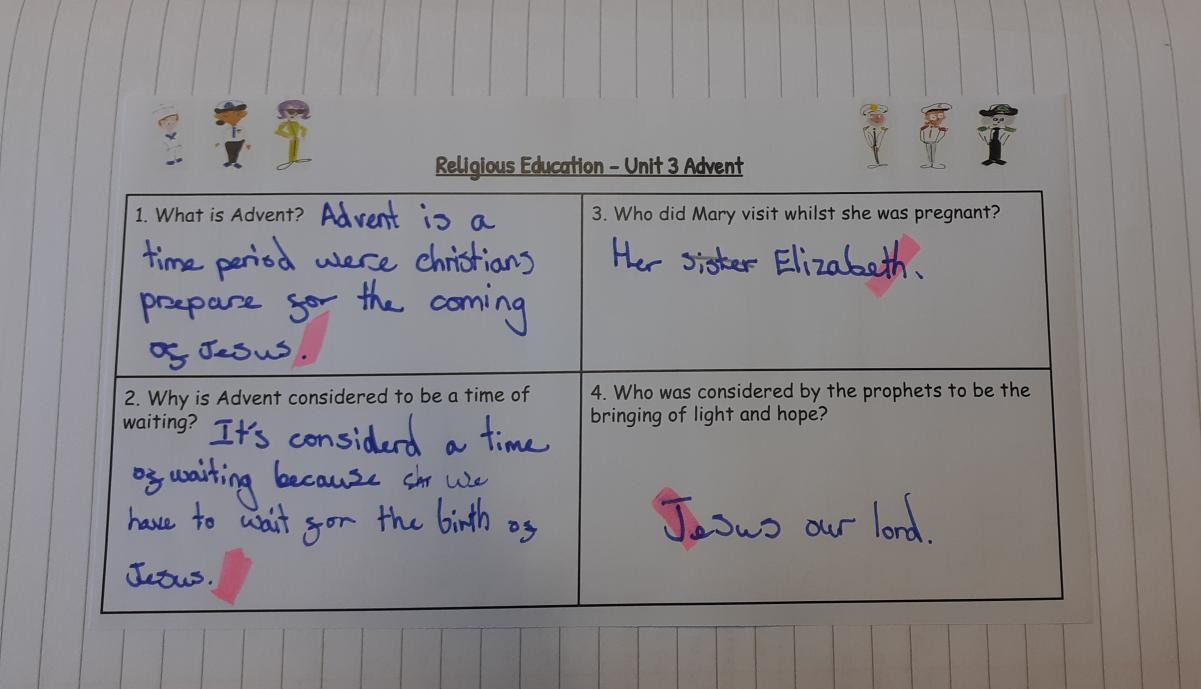 Religious Education – Unit 3 Advent
1. What is Advent? Advent is a
time period were christians
prepare for the coming
of Jesus.
2. Why is Advent considered to be a time of
waiting? It's considerd a time
of waiting because we
have to wait for the birth of
Jesus.
3. Who did Mary visit whilst she was pregnant?
Her sister Elizabeth.
4. Who was considered by the prophets to be the
bringing of light and hope?
Jesus our lord.